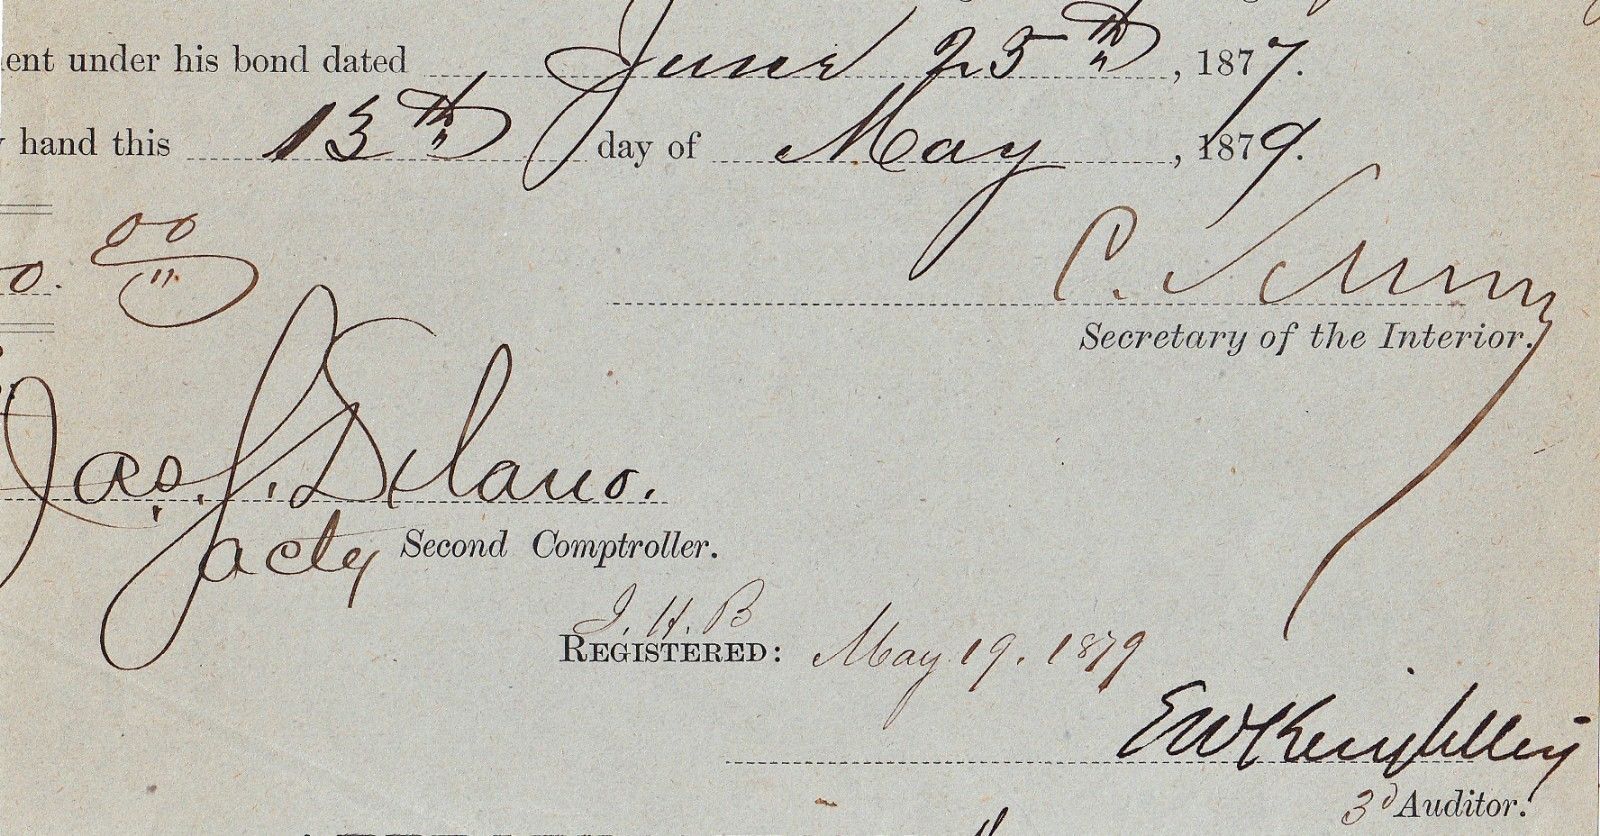 ent under his bond dated June 25th, 1877.
hand this 13th day of May, 1879.
00
0. "
C. Schurz
Secretary of the Interior.
Jas. J. Delano.
acty Second Comptroller.
J. H. B
REGISTERED: May 19. 1879
EW Keightley
3d Auditor.